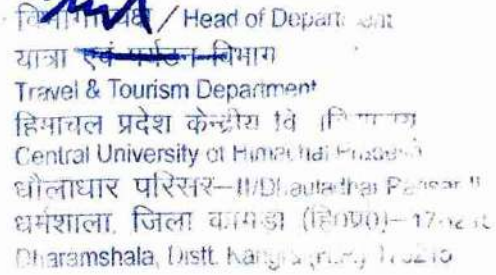 विभागाध्यक्ष / Head of Department
यात्रा एवं पर्यटन विभाग
Travel & Tourism Department
हिमाचल प्रदेश केन्द्रीय वि
Central University of Himachal Pradesh
धौलाधार परिसर-II/Dhauladhar Parisar II
धर्मशाला, जिला कांगड़ा (हि०प्र०)-176215
Dharamshala, Distt. Kangra (H.P.) 176215